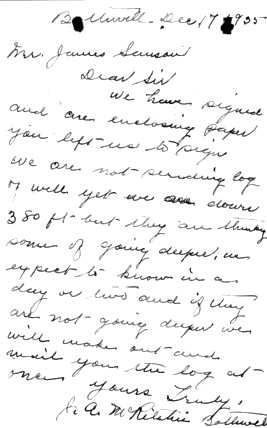 Bothwell - Dec 17 1935
Mr. James Sanson
Dear Sir
We have signed
and are enclosing paper
you left us to sign
we are not sending log
of well yet we are down
380 ft but they are thinking
some of going deeper, we
expect to know in a
day or two and if they
are not going deeper we
will make out and
mail you the log at
once
yours Truly,
J. A. McRitchie Bothwell